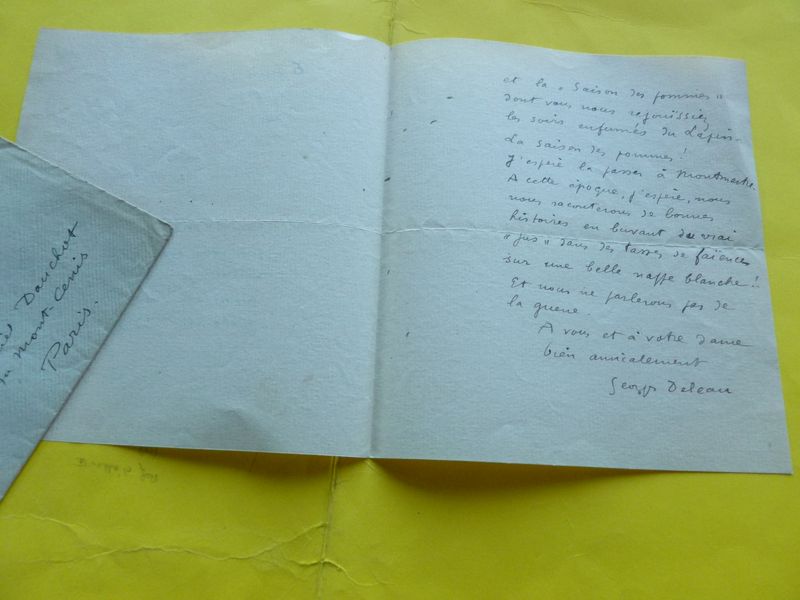 et la « Saison des pommes »
dont vous nous rejouïssiez
les soirs enfumés du Lapin.
La Saison des pommes !
J'espère la passer à Montmartre.
A cette époque, j'espère, nous
nous raconterons de bonnes
histoires en buvant du vrai
« jus » dans des tasses de faïences
sur une belle nappe blanche !!
Et nous ne parlerons pas de
la guerre.
A vous et à votre dame
bien amicalement
Georges Deleau
Dauchot
du Mont-Cenis
Paris.